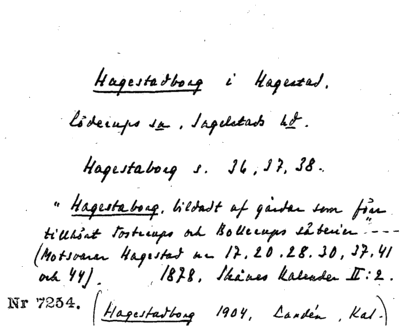 Hagestadborg i Hagestad,
Löderups sn, Ingelstads hd.
Hagestaborg s. 36, 37, 38.
"Hagestaborg, bildadt af gårdar som förr
tillhört Tosterups och Bollerups säterier" ----
(Motsvarar Hagestad nr 17, 20, 28, 30, 37, 41
och 44). 1878, Skånes Kalender II: 2.
Nr 7254. (Hagestadborg 1904, Landén, Kal.)